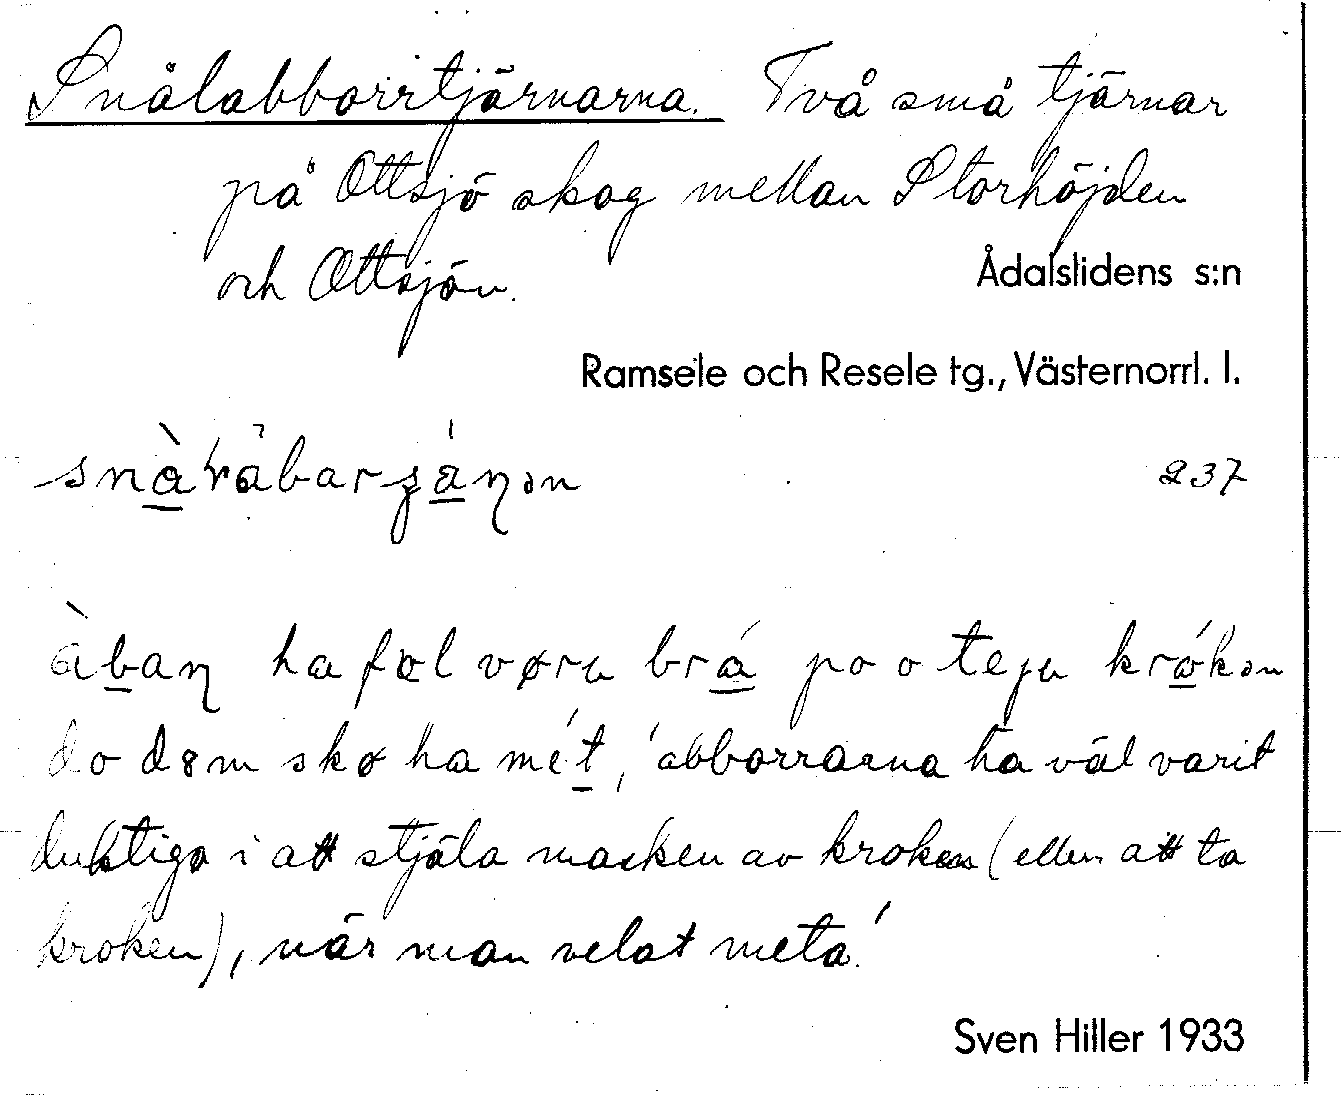 Snålabborrtjärnarna. Två små tjärnar
på Ottsjö skog mellan Storhöjden
och Ottsjön.
Ådalslidens s:n
Ramsele och Resele tg., Västernorrl. l.
237
ha brá po o
ha mét, 'abborrarna ha väl varit
duktiga i att stjäla masken av kroken (eller att ta
kroken), när man velat meta'
Sven Hiller 1933